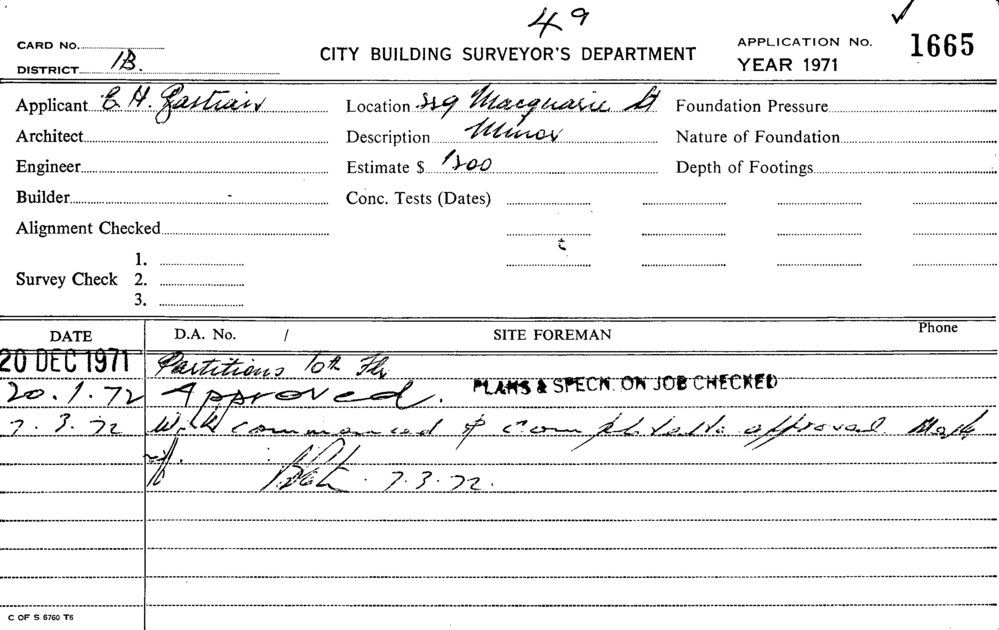 49
CARD NO.
DISTRICT 1B.
CITY BUILDING SURVEYOR'S DEPARTMENT
APPLICATION No. 1665
YEAR 1971
Applicant E. H.
Location Macquarie St
Foundation Pressure
Architect
Description Minor
Nature of Foundation
Engineer
Estimate $ 1200
Depth of Footings
Builder
Conc. Tests (Dates)
Alignment Checked
Survey Check 1.
2.
3.
DATE D.A. No. / SITE FOREMAN Phone
20 DEC 1971 Partitions 10th Flr
20.1.72 Approved. PLANS & SPECN. ON JOB CHECKED
7.3.72 Work commenced & approved
7.3.72.
C OF S 6760 T6